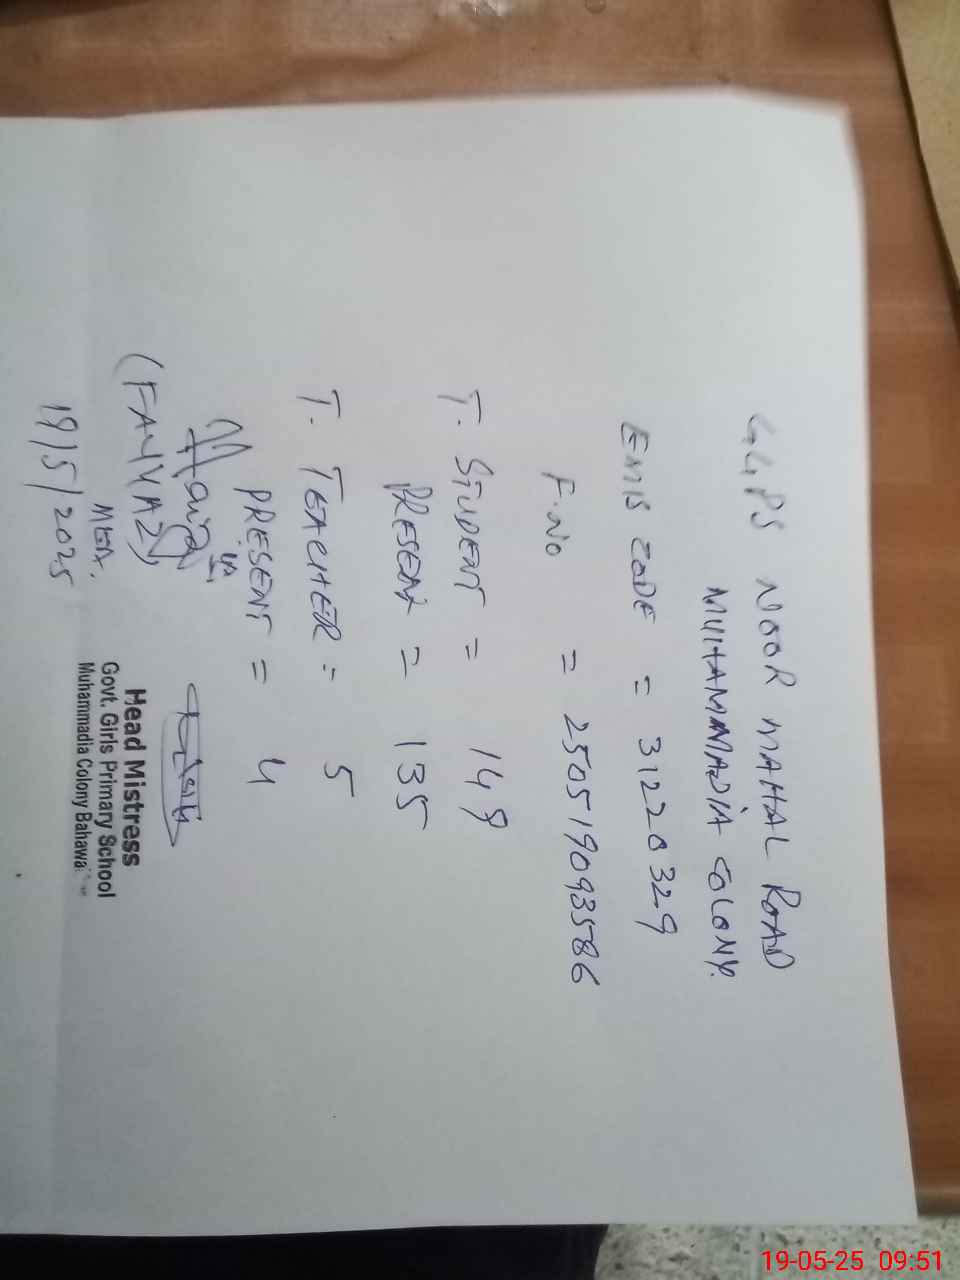 GGPS NOOR MAHAL ROAD
MUHAMMADIA COLONY.
EMIS CODE = 31220329
F.No = 25051909093586
T. STUDENT = 149
PRESENT = 135
T. TEACHER = 5
PRESENT = 4
(FAYYAZ)
MEA.
19/5/2025
Head Mistress
Govt. Girls Primary School
Muhammadia Colony
19-05-25 09:51